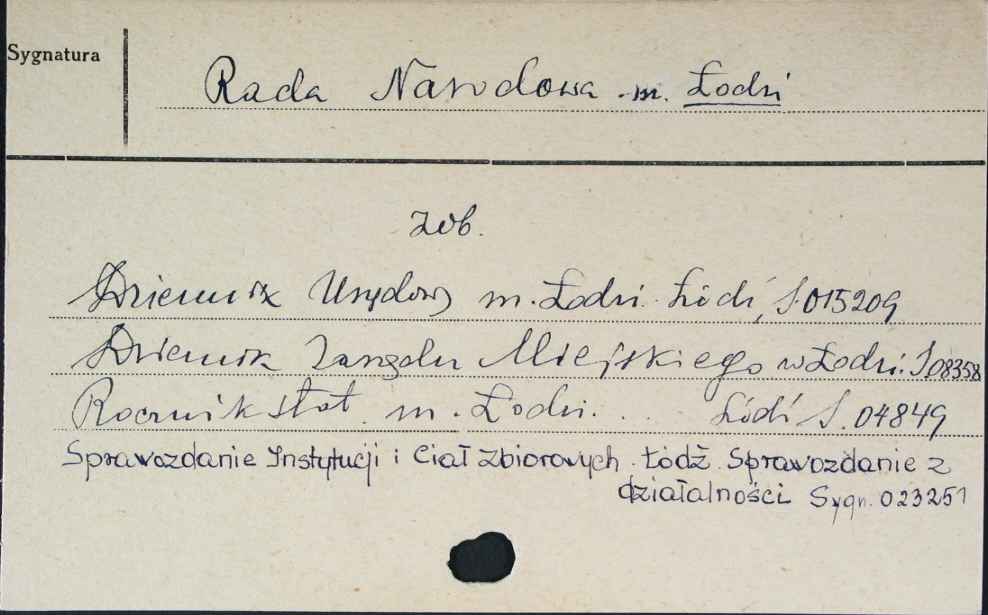 Sygnatura
Rada Narodowa m. Łodzi
zob.
Dziennik Urzędowy m. Łodzi. Łódź, S.015209
Dziennik Zarządu Miejskiego w Łodzi. S08358
Rocznik stat. m. Łodzi. . . . Łódź S.04849
Sprawozdanie Instytucji i Ciał Zbiorowych. Łódź. Sprawozdanie z
działalności Sygn. 023251